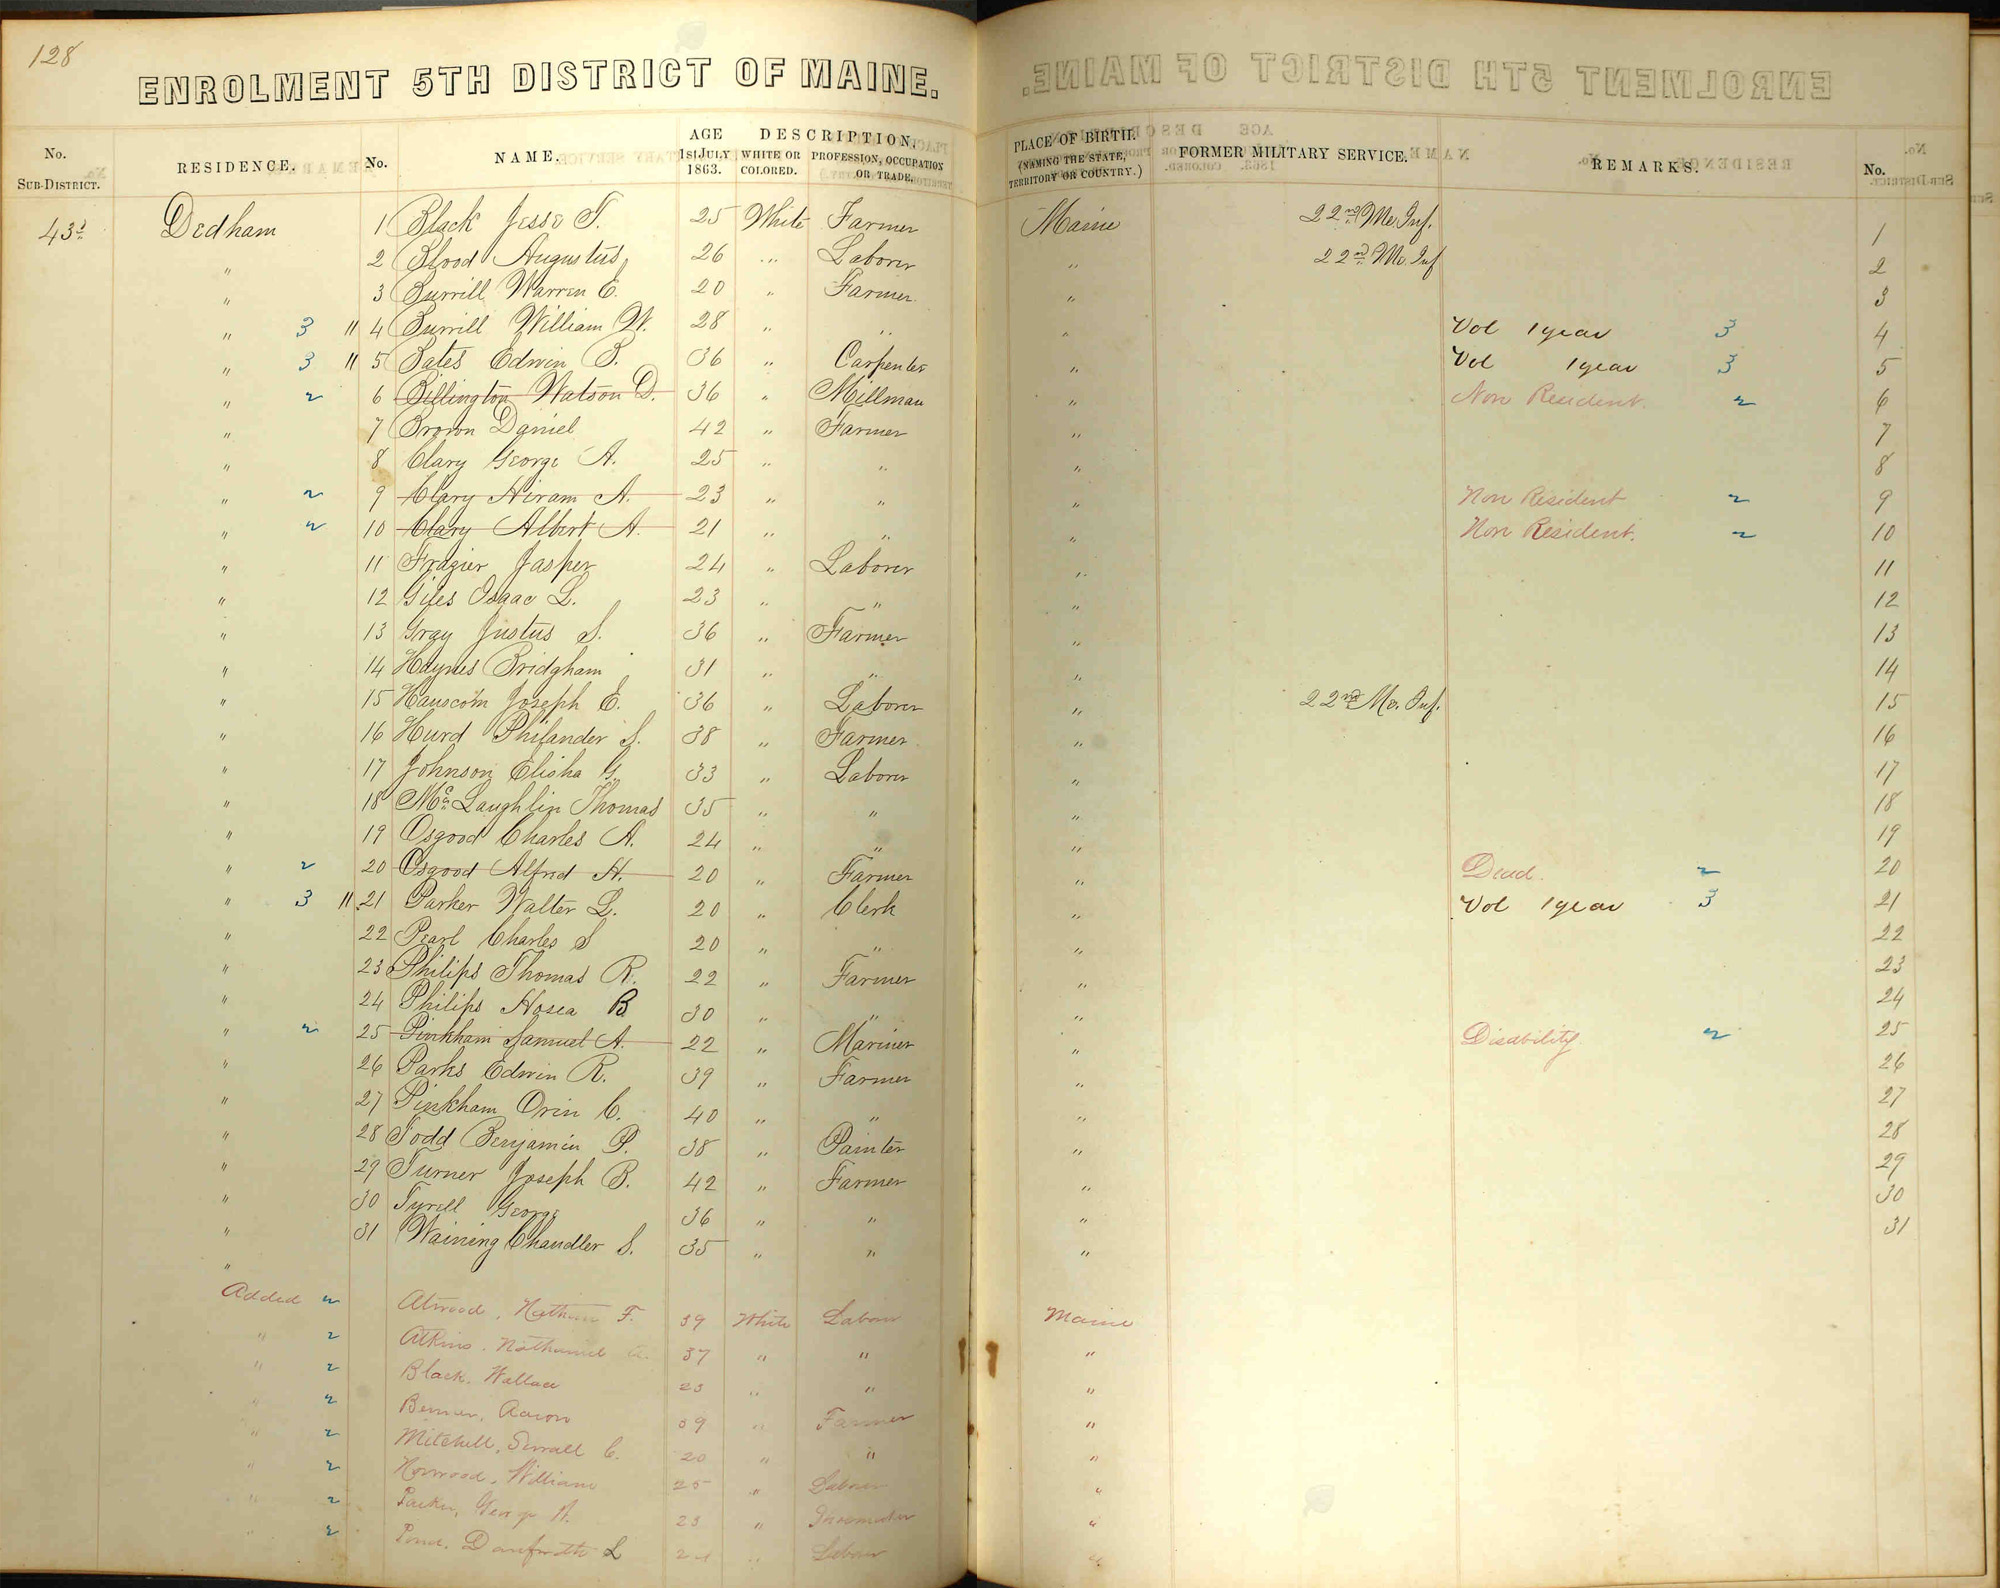 128
ENROLMENT 5TH DISTRICT OF MAINE.
No. SUB-DISTRICT. RESIDENCE. No. NAME. AGE 1st JULY 1863. DESCRIPTION. WHITE OR COLORED. PROFESSION, OCCUPATION OR TRADE. PLACE OF BIRTH. (NAMING THE STATE, TERRITORY OR COUNTRY.) FORMER MILITARY SERVICE. REMARKS. No. SUB-DISTRICT.
43d Dedham 1 Black Jesse T. 25 White Farmer Maine 22nd Me. Inf. 1
" 2 Blood Augustus 26 " Laborer " 22nd Me. Inf 2
" 3 Burrill Warren E. 20 " Farmer " 3
" 3 " 4 Burrill William W. 28 " " " Vol 1 year 3 4
" 3 " 5 Bates Edwin B. 36 " Carpenter " Vol 1 year 3 5
" 2 6 Billington Watson D. 36 " Millman " Non Resident. 2 6
" 7 Brown Daniel 42 " Farmer " 7
" 8 Clary George A. 25 " " " 8
" 2 9 Clary Hiram A. 23 " " " Non Resident 2 9
" 2 10 Clary Albert A. 21 " " " Non Resident. 2 10
" 11 Frazier Jasper 24 " Laborer " 11
" 12 Giles Isaac L. 23 " " " 12
" 13 Gray Justus S. 36 " Farmer " 13
" 14 Haynes Bridgham 31 " " " 14
" 15 Hanscom Joseph E. 36 " Laborer " 22nd Me. Inf. 15
" 16 Hurd Philander S. 38 " Farmer " 16
" 17 Johnson Elisha G. 33 " Laborer " 17
" 18 McLaughlin Thomas 35 " " " 18
" 19 Osgood Charles A. 24 " " " 19
" 2 20 Osgood Alfred H. 20 " Farmer " Dead. 2 20
" 3 " 21 Parker Walter L. 20 " Clerk " Vol 1 year 3 21
" 22 Pearl Charles S 20 " " " 22
" 23 Philips Thomas R. 22 " Farmer " 23
" 24 Philips Hosea B 30 " " " 24
" 2 25 Pinkham Samuel A. 22 " Mariner " Disability 2 25
" 26 Parks Edwin R. 39 " Farmer " 26
" 27 Pinkham Orin C. 40 " " " 27
" 28 Todd Benjamin P. 38 " Painter " 28
" 29 Turner Joseph B. 42 " Farmer " 29
" 30 Tyrell George 36 " " " 30
" 31 Waining Chandler S. 35 " " " 31
"
Added 2 Atwood, Nathan F. 39 White Labour Maine
" 2 Atkins, Nathaniel 37 " " "
" 2 Black, Wallace 23 " " "
" 2 Aaron 39 " Farmer "
" 2 Mitchell, C. 20 " " "
" 2 Norwood, William 25 " Labour "
" 2 George 23 " "
" 2 Danforth L " Labour "